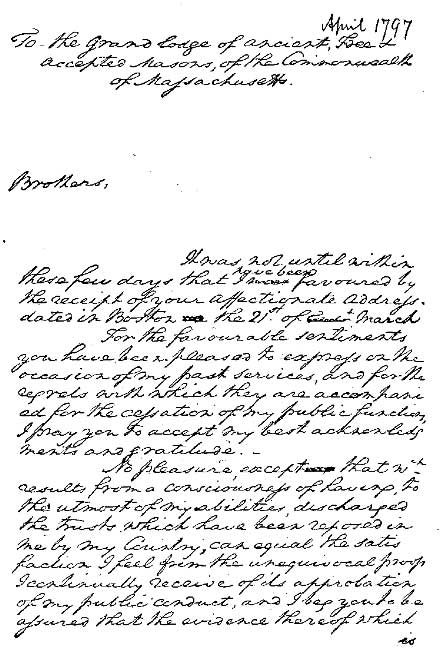 April 1797
To the Grand Lodge of ancient, Free &
accepted Masons, of the Commonwealth
of Massachusetts.
Brothers,
It was, not until within
have been
these few days that I favoured by
the receipt of your affectionate Address.
dated in Boston the 21st of March
For the favourable sentiments
you have been pleased to express on the
occasion of my past services, and for the
regrets with which they are accompani
ed for the cessation of my public functions,
I pray you to accept my best acknowledg
ments and gratitude. -
No pleasure, except that wch
results from a consciousness of having, to
the utmost of my abilities, discharged
the trusts which have been reposed in
me by my Country, can equal the satis
faction I feel from the unequivocal proofs
I continually receive of its approbation
of my public conduct, and I beg you to be
assured that the evidence thereof which
is